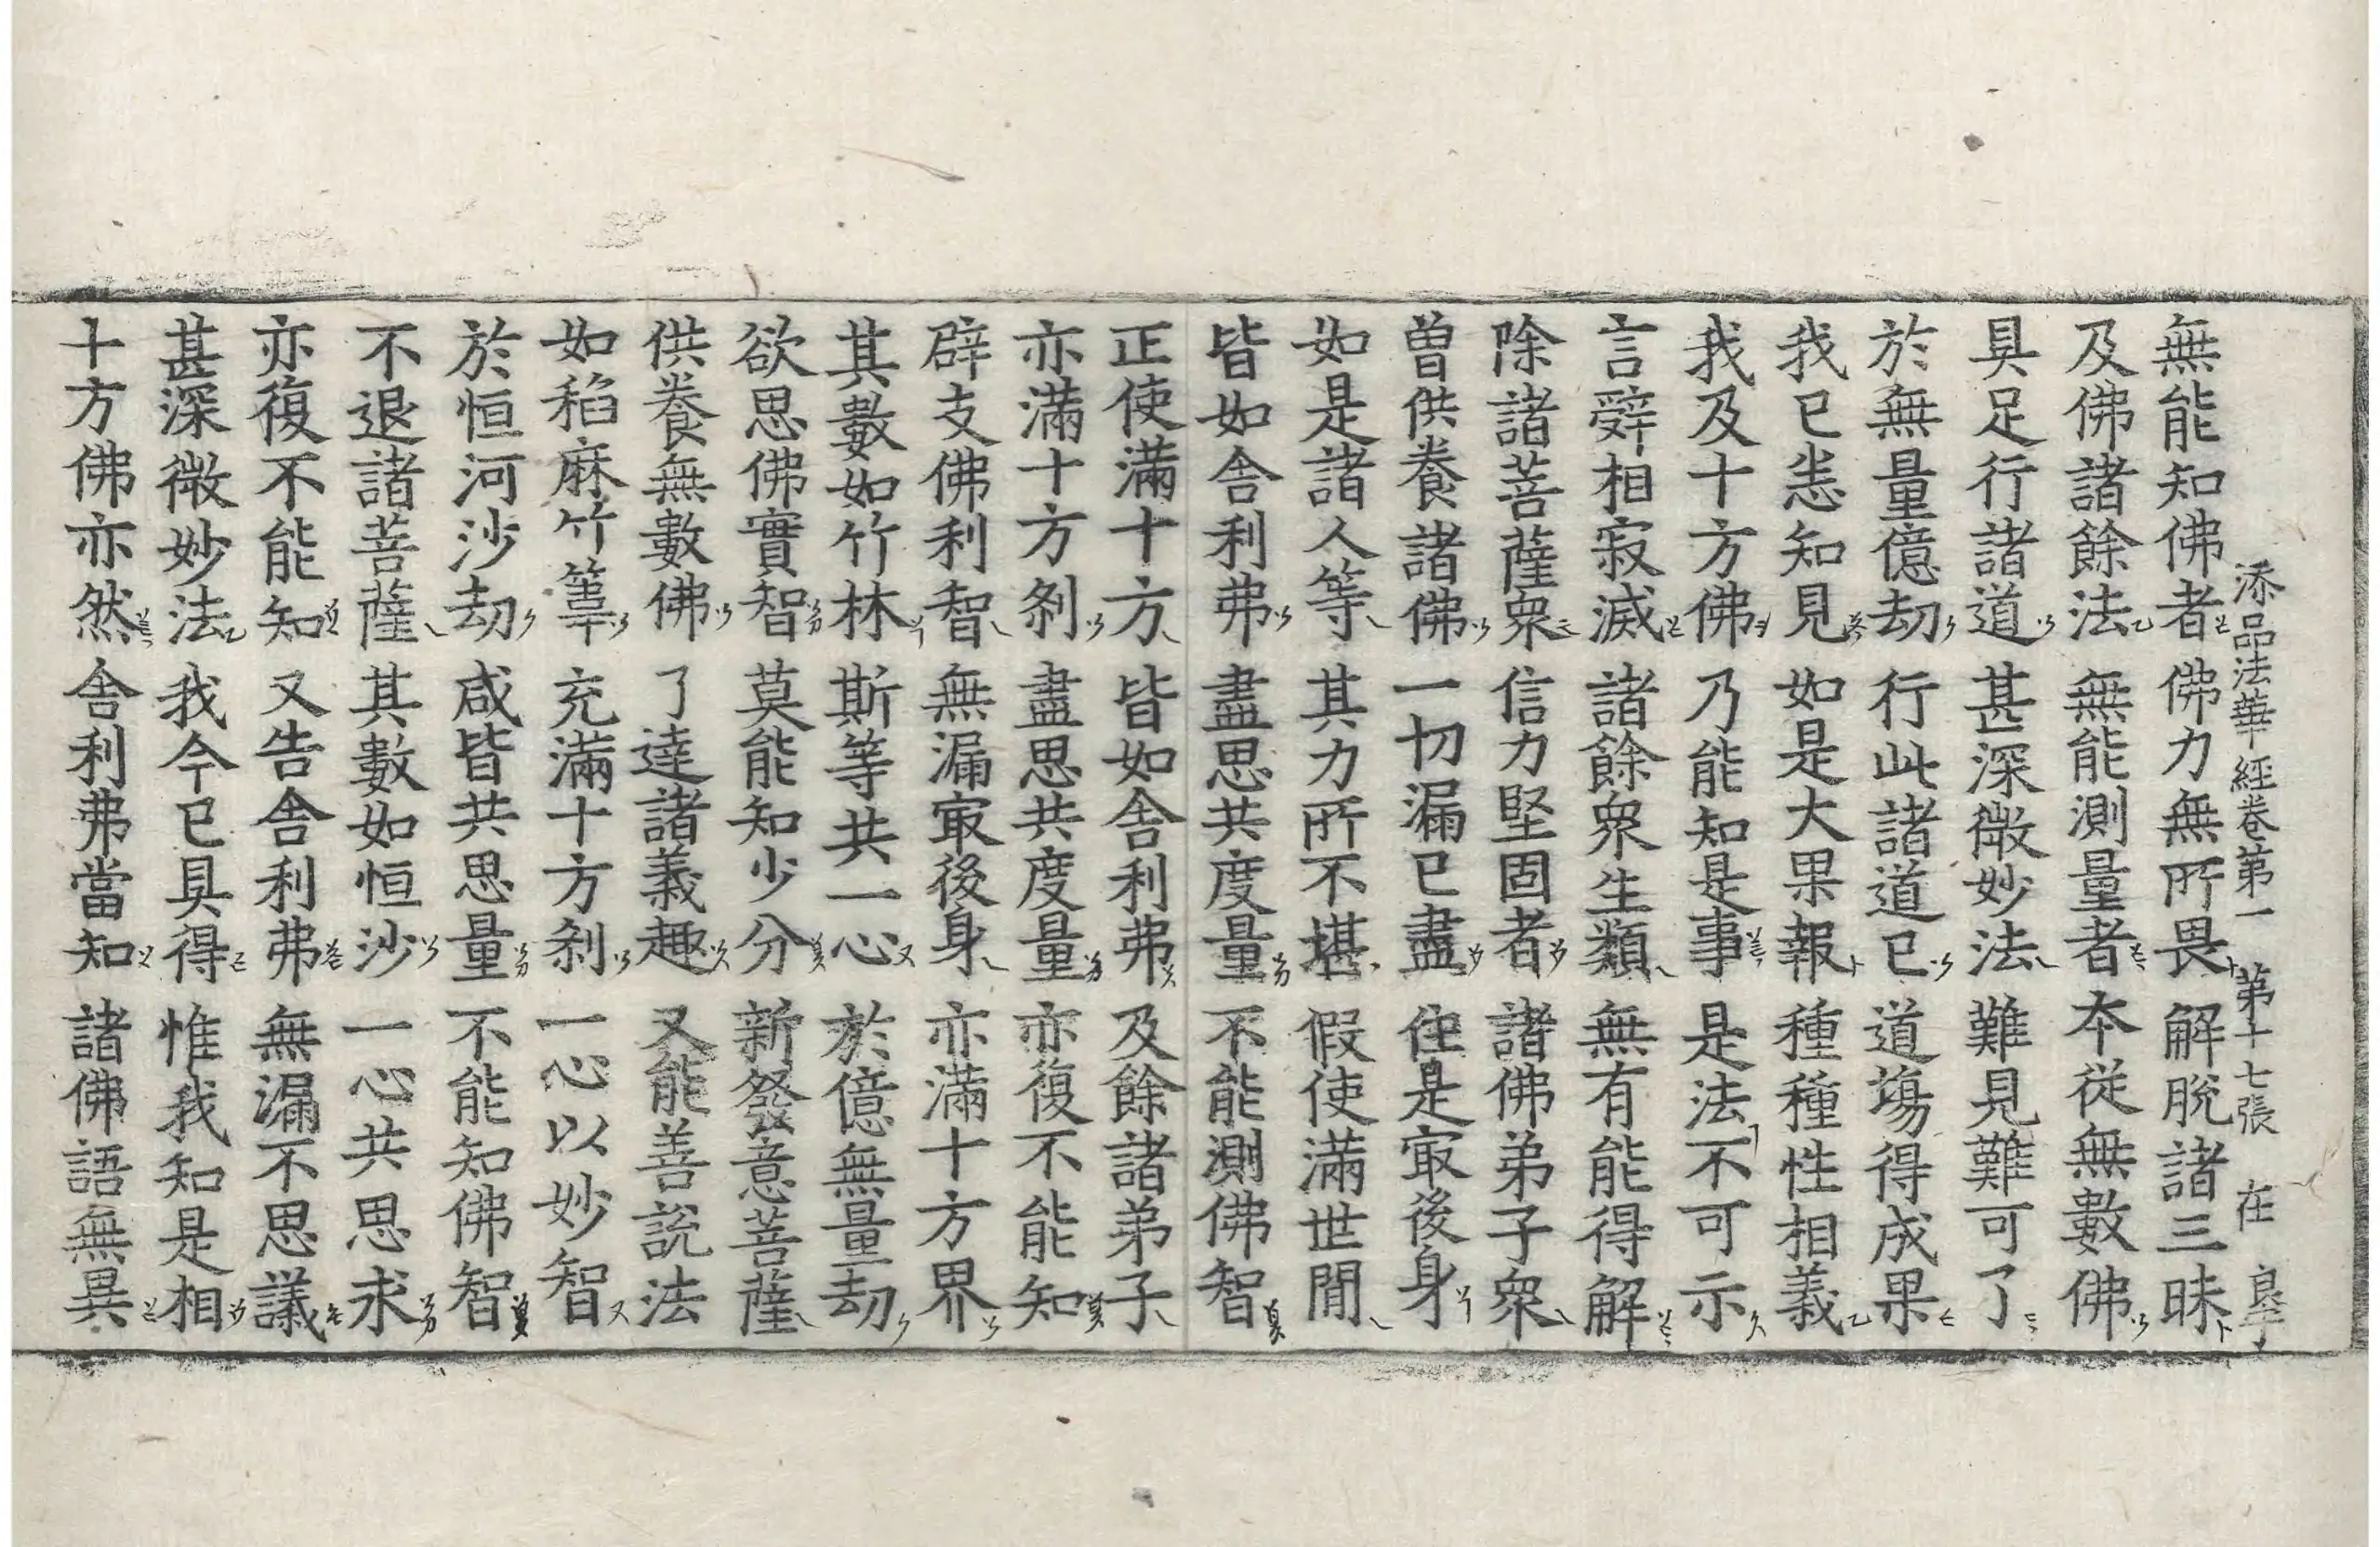 添品法華經卷第一 第十七張 在
無能知佛者 佛力無所畏 解脫諸三昧
及佛諸餘法 無能測量者 本從無數佛
具足行諸道 甚深微妙法 難見難可了
於無量億劫 行此諸道已 道場得成果
我已悉知見 如是大果報 種種性相義
我及十方佛 乃能知是事 是法不可示
言辝相寂滅 諸餘衆生類 無有能得解
除諸菩薩衆 信力堅固者 諸佛弟子衆
曾供養諸佛 一切漏已盡 住是㝡後身
如是諸人等 其力所不堪 假使滿世間
皆如舎利弗 盡思共度量 不能測佛智
正使滿十方 皆如舎利弗 及餘諸弟子
亦滿十方剎 盡思共度量 亦復不能知
辟支佛利智 無漏㝡後身 亦滿十方界
其數如竹林 斯等共一心 於億無量劫
欲思佛實智 莫能知少分 新發意菩薩
供養無數佛 了達諸義趣 又能善說法
如稻麻竹葦 充滿十方剎 一心以妙智
於恒河沙劫 咸皆共思量 不能知佛智
不退諸菩薩 其數如恒沙 一心共思求
亦復不能知 又告舎利弗 無漏不思議
甚深微妙法 我今已具得 惟我知是相
十方佛亦然 舎利弗當知 諸佛語無異